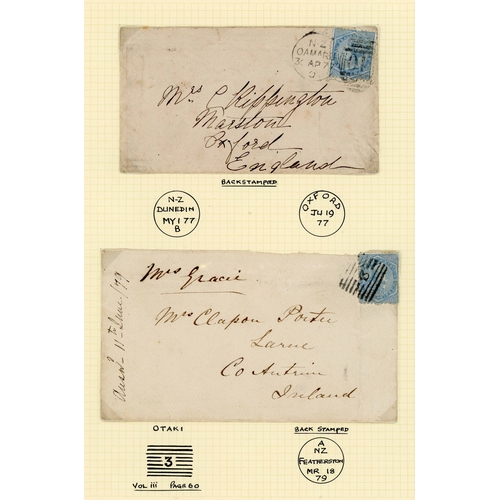 N Z
OAMARU
30 AP 77
Mrs C Kippington
Marston
Oxford
England
BACKSTAMPED
N-Z
DUNEDIN
MY 1 77
B
OXFORD
JU 19
77
Mrs Gracie
Ansd 11th June/79
Mrs Clapon Porter
Larne
Co Antrim
Ireland
OTAKI
3
VOL III PAGE 60
BACK STAMPED
A
NZ
FEATHERSTON
MR 18
79